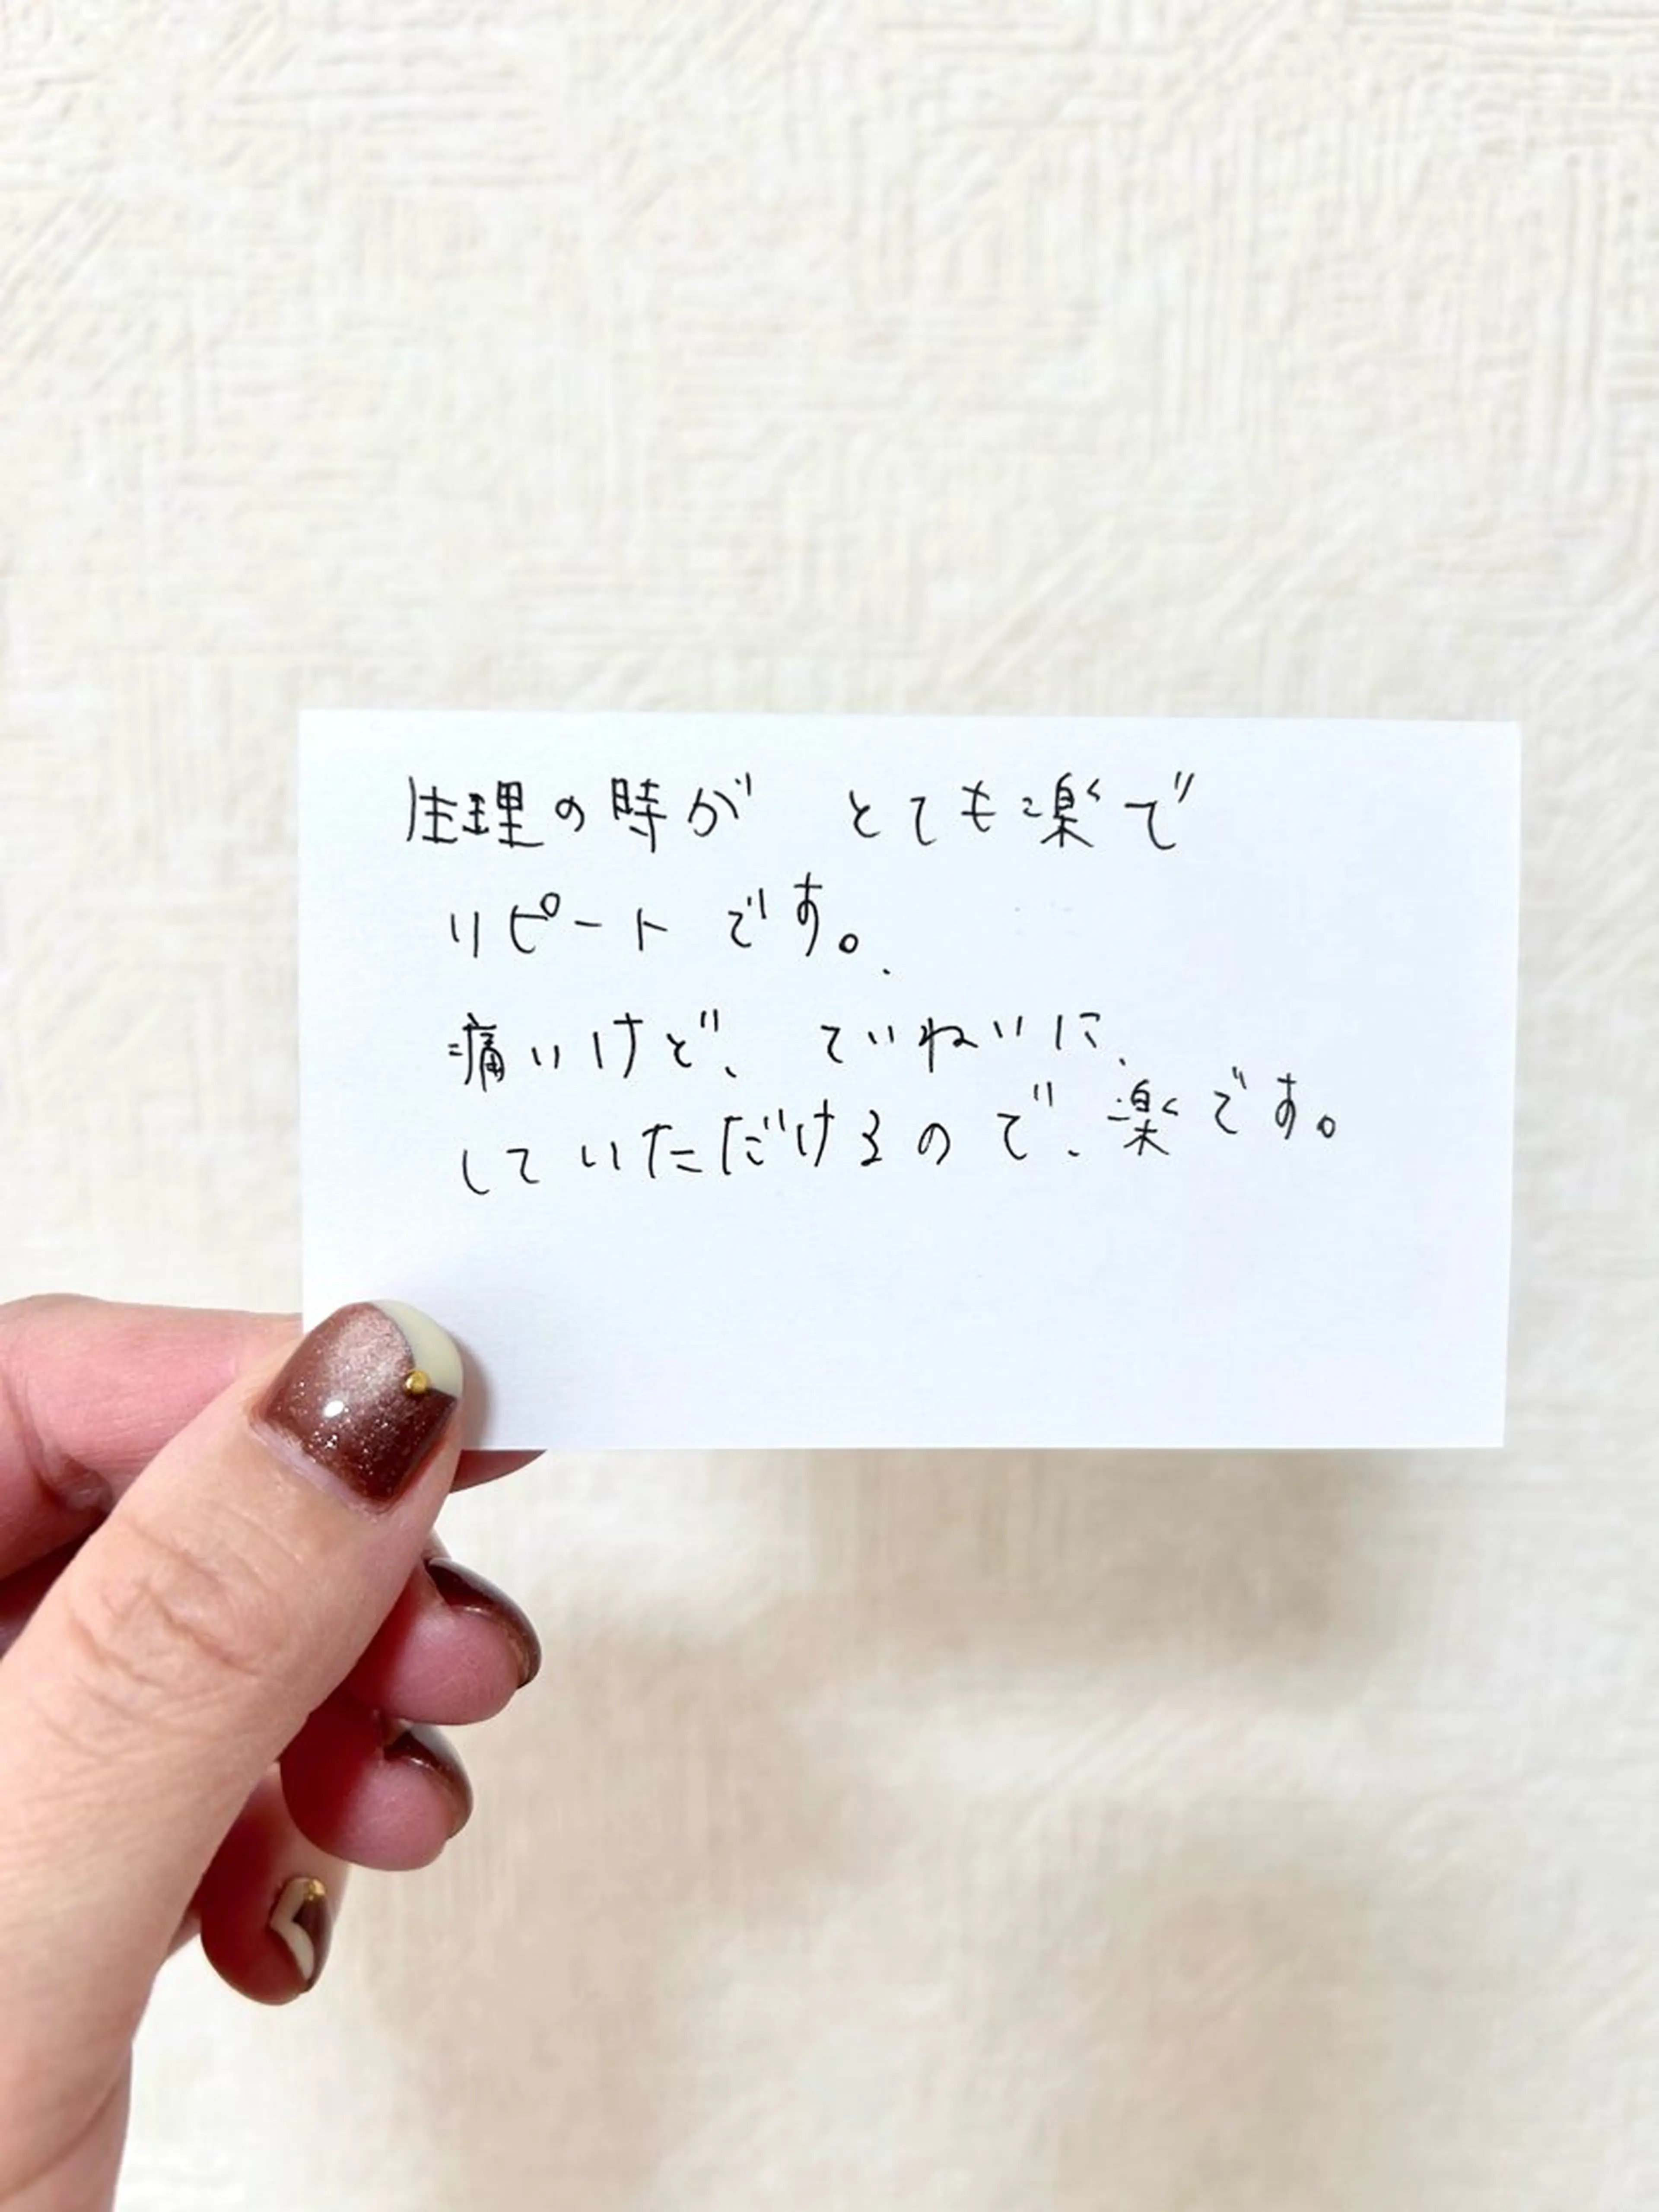 生理の時が とても楽で
リピートです。
痛いけど、ていねいに、
していただけるので、楽です。